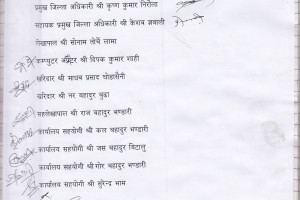 प्रमुख जिल्ला अधिकारी श्री कृष्ण कुमार निरौला
सहायक प्रमुख जिल्ला अधिकारी श्री केशव ज्ञवाली
लेखापाल श्री सोनाम लोर्चे लामा
कम्प्युटर अप्रेटर श्री दिपक कुमार शाही
खरिदार श्री माधव प्रसाद घोडासैनी
खरिदार श्री नर बहादुर बुढा
सहलेखापाल श्री राज बहादुर भण्डारी
कार्यालय सहयोगी श्री कल बहादुर भण्डारी
कार्यालय सहयोगी श्री जस बहादुर बिटालु
कार्यालय सहयोगी श्री गोर बहादुर भण्डारी
कार्यालय सहयोगी श्री सुरेन्द्र भाम